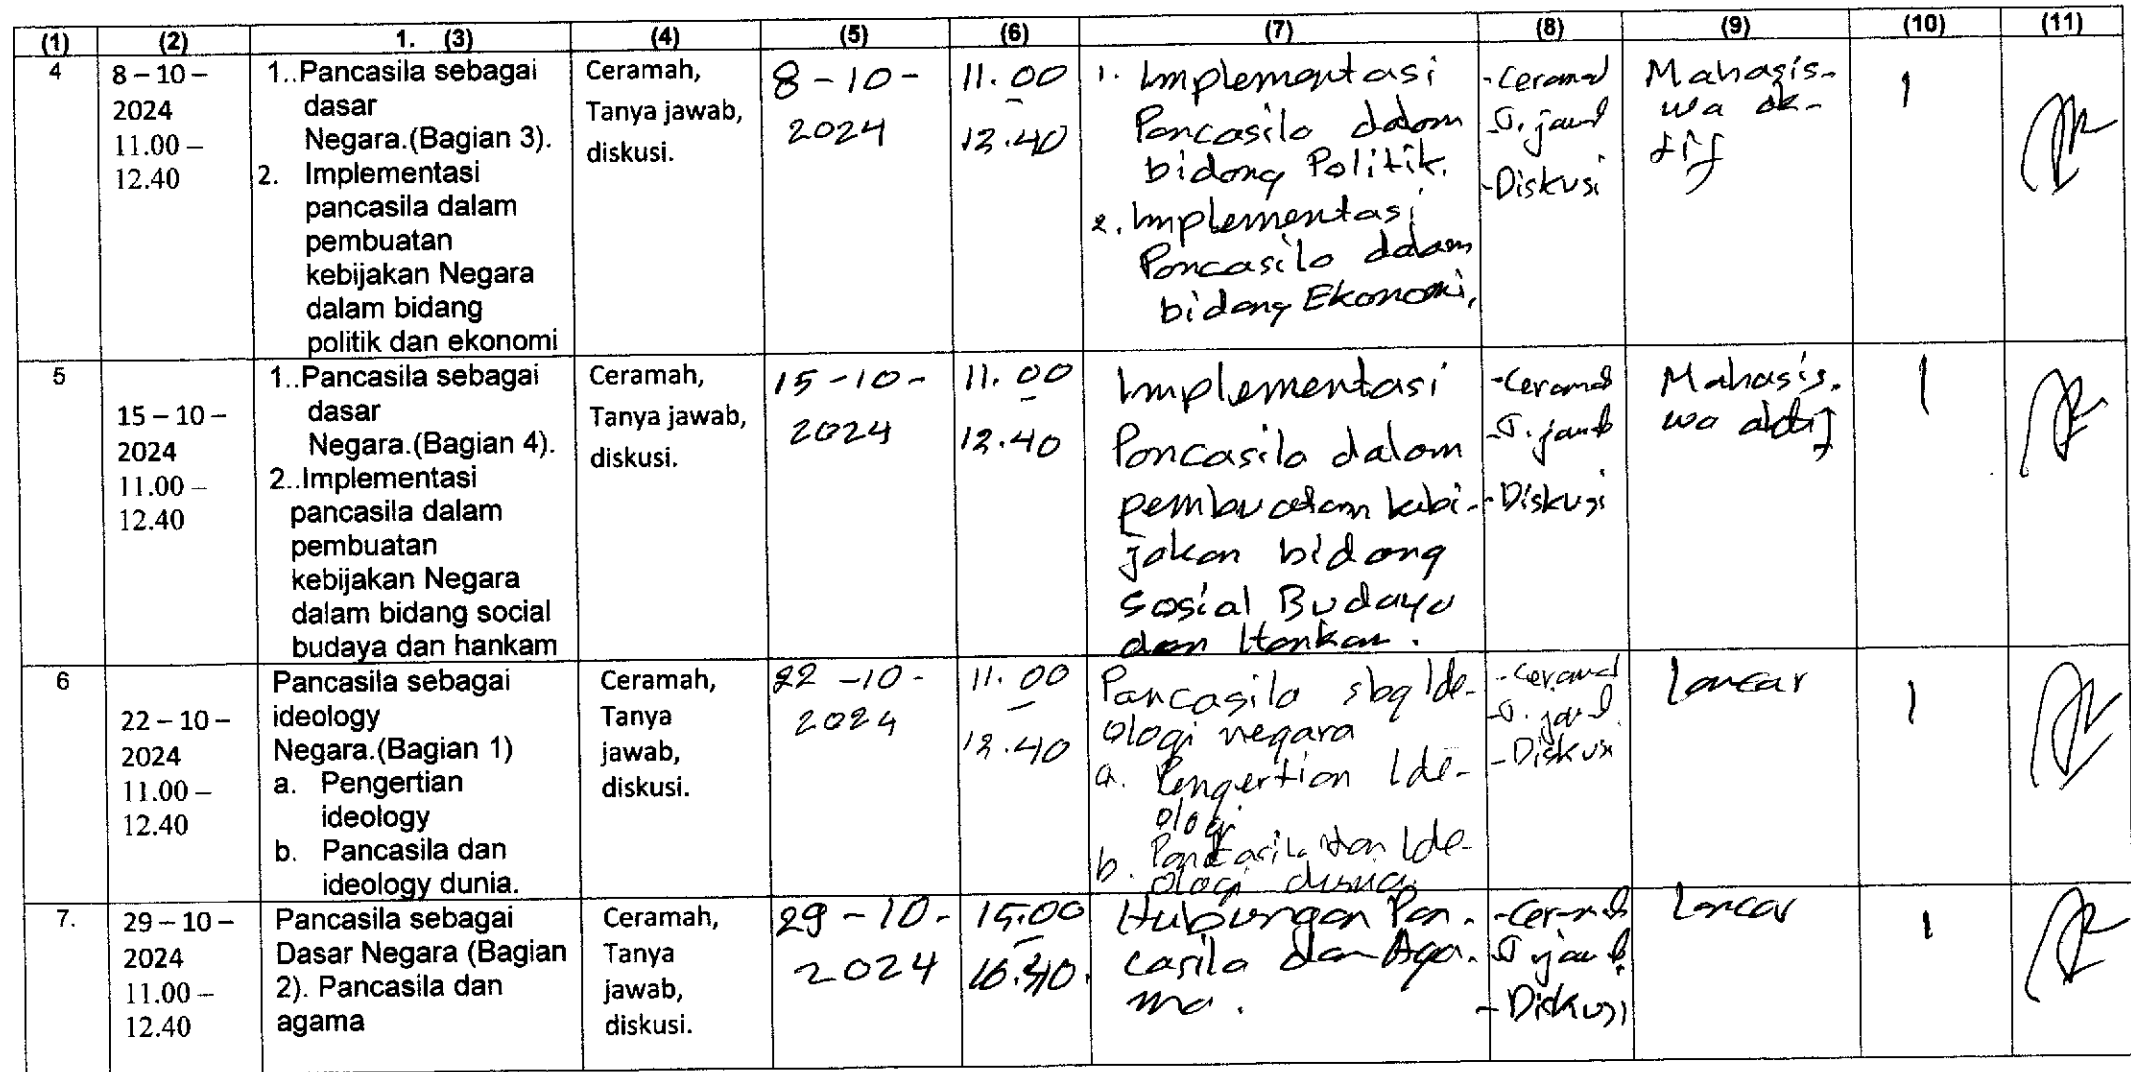 (1) (2) 1. (3) (4) (5) (6) (7) (8) (9) (10) (11)
4
8 – 10 –
2024
11.00 –
12.40
1..Pancasila sebagai
dasar
Negara.(Bagian 3).
2. Implementasi
pancasila dalam
pembuatan
kebijakan Negara
dalam bidang
politik dan ekonomi
Ceramah,
Tanya jawab,
diskusi.
8 - 10 -
2024
11.00
–
12.40
1. Implementasi
Pancasila dalam
bidang Politik.
2. Implementasi
Pancasila dalam
bidang Ekonomi.
- Ceramah
- T. jawab
- Diskusi
Mahasis-
wa ak-
tif
1
5
15 – 10 –
2024
11.00 –
12.40
1..Pancasila sebagai
dasar
Negara.(Bagian 4).
2..Implementasi
pancasila dalam
pembuatan
kebijakan Negara
dalam bidang social
budaya dan hankam
Ceramah,
Tanya jawab,
diskusi.
15 - 10 -
2024
11.00
–
12.40
Implementasi
Pancasila dalam
pembuatan kebi-
jakan bidang
Sosial Budaya
dan Hankam.
- Ceramah
- T. jawab
- Diskusi
Mahasis-
wa aktif
1
6
22 – 10 –
2024
11.00 –
12.40
Pancasila sebagai
ideology
Negara.(Bagian 1)
a. Pengertian
ideology
b. Pancasila dan
ideology dunia.
Ceramah,
Tanya
jawab,
diskusi.
22 - 10 -
2024
11.00
–
12.40
Pancasila sbg Ide-
ologi negara
a. Pengertian Ide-
ologi
b. Pancasila dan Ide-
ologi dunia.
- Ceramah
- T. jawab
- Diskusi
Lancar
1
7.
29 – 10 –
2024
11.00 –
12.40
Pancasila sebagai
Dasar Negara (Bagian
2). Pancasila dan
agama
Ceramah,
Tanya
jawab,
diskusi.
29 - 10 -
2024
15.00
–
16.40.
Hubungan Pan-
casila dan Aga-
ma.
- Ceramah
- T. jawab
- Diskusi
Lancar
1